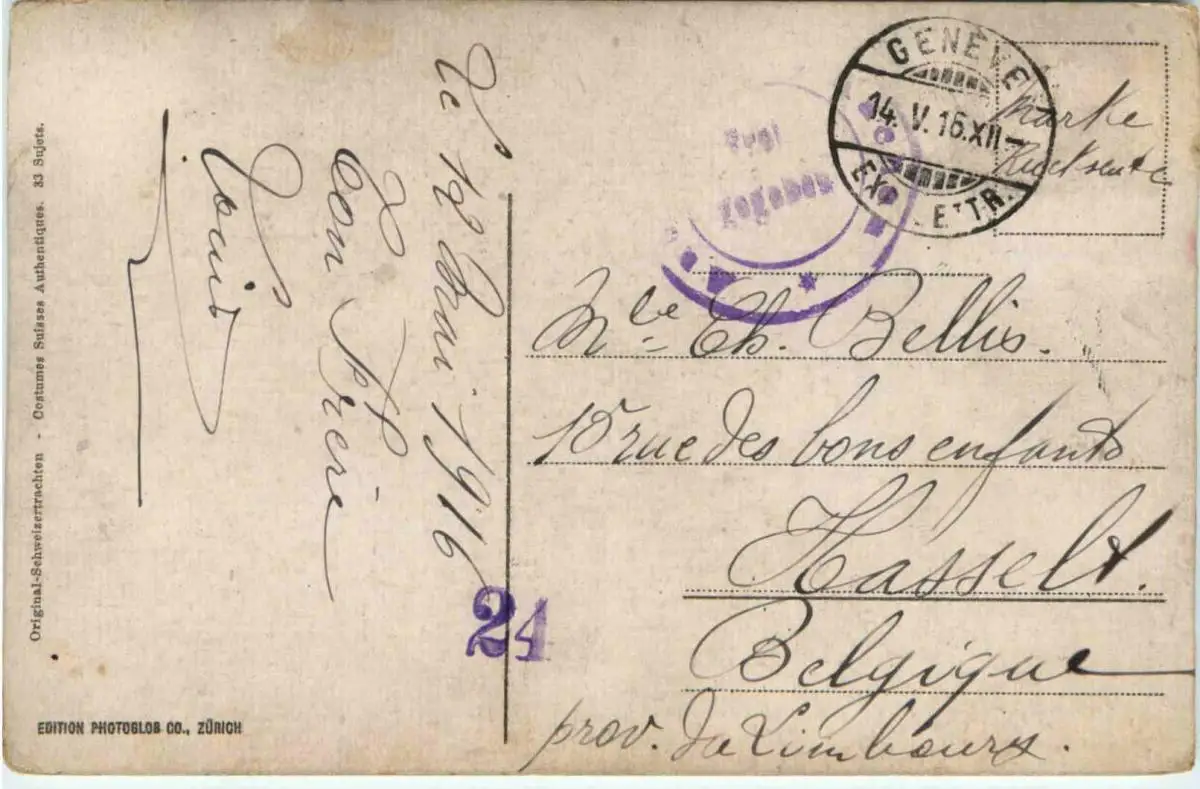 Original-Schweizertrachten - Costumes Suisses Authentiques. 33 Sujets.
EDITION PHOTOGLOB CO., ZÜRICH
le 12 Mai 1916
Ton Frère
Louis
24
GENÈVE
14. V. 16. XII–
EXP. LETTR.
Marke
Rückseite
Aachen
zogeben
Mlle Ch. Bellis.
15 rue des bons enfants
Hasselt.
Belgique
prov. du Limbourg.